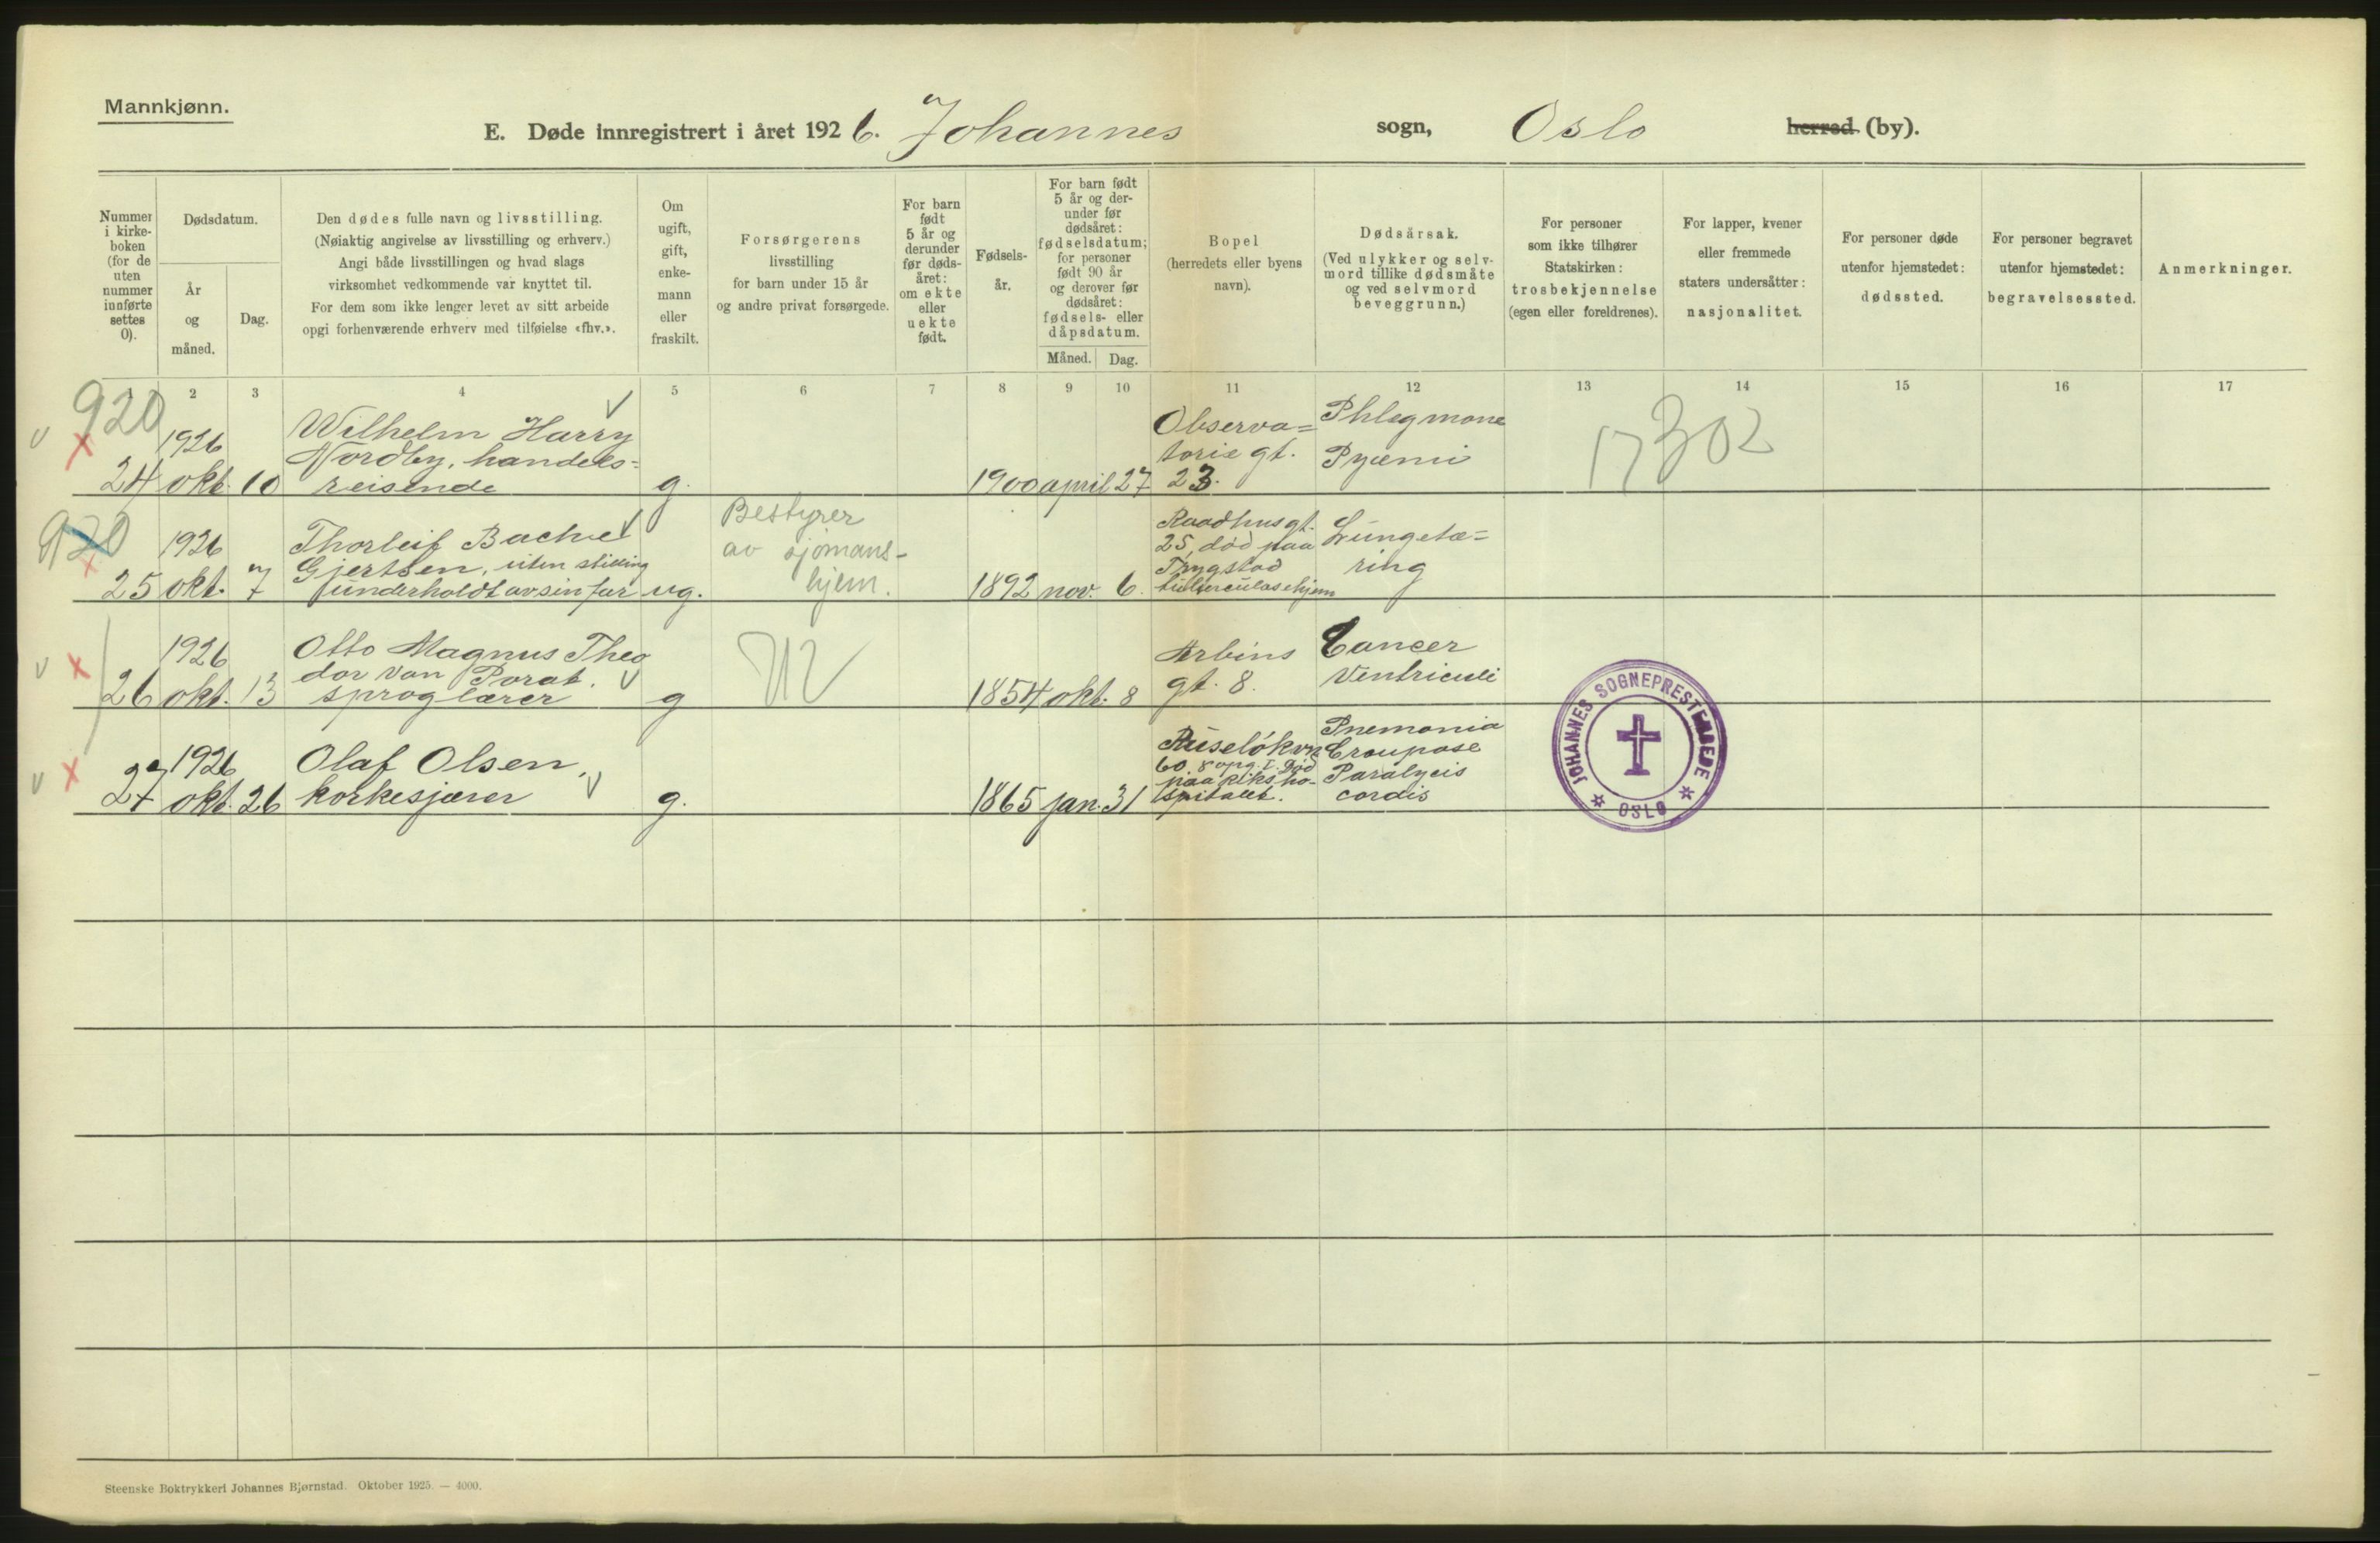 Mannkjønn.
E. Døde innregistrert i året 1926. Johannes sogn, Oslo herred (by).
Nummer i kirke-boken (for de uten nummer innførte settes 0).
Dødsdatum.
År og måned.
Dag.
Den dødes fulle navn og livsstilling.
(Nøiaktig angivelse av livsstilling og erhverv.)
Angi både livsstillingen og hvad slags
virksomhet vedkommende var knyttet til.
For dem som ikke lenger levet av sitt arbeide
opgi forhenværende erhverv med tilføielse «fhv.».
Om ugift, gift, enke-mann eller fraskilt.
Forsørgerens
livsstilling
for barn under 15 år
og andre privat forsørgede.
For barn født 5 år og derunder før døds-året: om ekte eller uekte født.
Fødsels-år.
For barn født 5 år og der-under før dødsåret: fødselsdatum; for personer født 90 år og derover før dødsåret: fødsels- eller dåpsdatum.
Måned. Dag.
Bopel
(herredets eller byens
navn).
Dødsårsak.
(Ved ulykker og selv-
mord tillike dødsmåte
og ved selvmord
beveggrunn.)
For personer
som ikke tilhører
Statskirken:
trosbekjennelse
(egen eller foreldrenes).
For lapper, kvener
eller fremmede
staters undersåtter:
nasjonalitet.
For personer døde
utenfor hjemstedet:
dødssted.
For personer begravet
utenfor hjemstedet:
begravelsessted.
Anmerkninger.
1 2 3 4 5 6 7 8 9 10 11 12 13 14 15 16 17
920
24 1926 okt. 10
Wilhelm Harry
Nordby, handels=
reisende
g.
1900 april 27
Observa=
torie gt.
23.
Phlegmone
Pyæmi
17302
920
25 1926 okt. 7
Thorleif Bache
Gjertsen, uten stilling
underholdt av sin far
ug.
Bestyrer
av sjømans-
hjem.
1892 nov. 6.
Raadhusgt.
25, død paa
Trygstad
tuberculosehjem
Lungetæ=
ring
26 1926 okt. 13
Otto Magnus Theo
dor von Porat.
sproglærer
g
1854 okt. 8
Arbins
gt. 8.
Cancer
Ventriculi
27 1926 okt. 26
Olaf Olsen,
korkesjærer
g.
1865 jan. 31
Ruseløkvn
60, opg. I. Død
paa Riksho-
spitalet.
Pnemonia
Croupose
Paralycis
cordis
JOHANNES SOGNEPRESTEMBEDE
* OSLO *
Steenske Boktrykkeri Johannes Bjørnstad. Oktober 1925. — 4000.